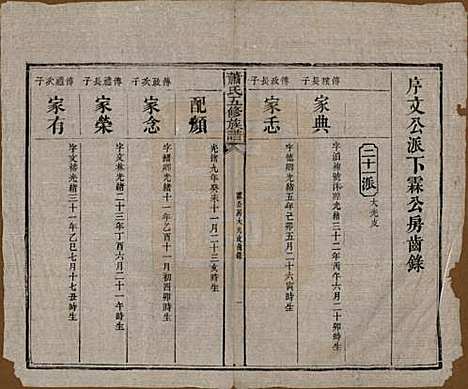 序文公派下霖公房齒錄
二十一派 大光支
傳陞長子
家典
字湞 號 光緒三十二年丙午六月二十 卯時生
傳政長子
家忎
字德 光緒五年己卯五月二十六寅時生
蕭氏五修族譜
霖公房大光支齒錄
一
配頫
光緒九年癸未十一月二十三亥時生
傳政次子
家念
字 光緒十一年乙酉十一月初四卯時生
傳禮長子
家榮
字文 光緒二十三年丁酉六月二十一午時生
傳禮次子
家有
字文 光緒三十一年乙巳七月十七丑時生